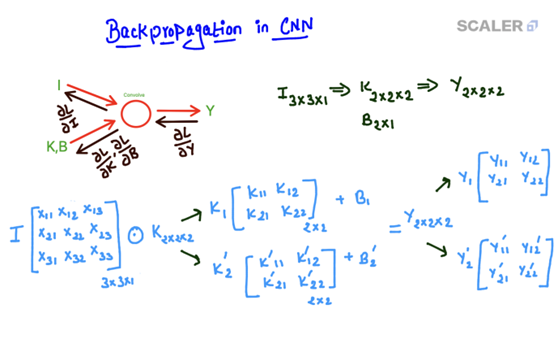 Backpropagation in CNN
SCALER
I
Convolve
Y
K,B
∂L/∂I
∂L/∂K' ∂L/∂B
∂L/∂Y
I3x3x1 ⇒ K2x2x2 ⇒ Y2x2x2
B2x1
I [x11 x12 x13
x21 x22 x23
x31 x32 x33] 3x3x1
⊙ K2x2x2
K1 [K11 K12
K21 K22] 2x2 + B1
K2' [K'11 K'12
K'21 K'22] 2x2 + B2'
= Y2x2x2
Y1 [Y11 Y12
Y21 Y22]
Y2' [Y'11 Y12'
Y'21 Y22']